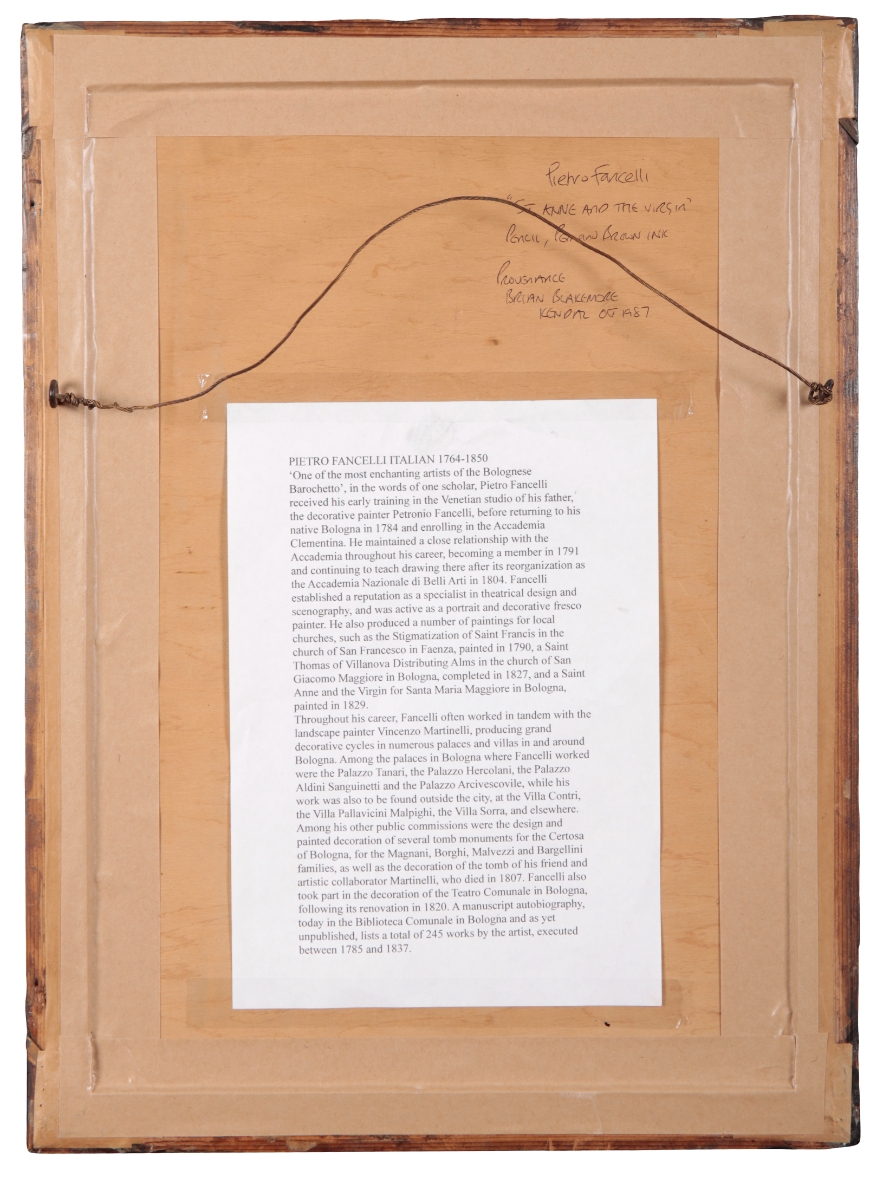 Pietro Fancelli
"St ANNE AND THE VIRGIN"
PENCIL, PEN AND BROWN INK
PROVENANCE
BRIAN BLAKEMORE
KENDAL OCT 1987
PIETRO FANCELLI ITALIAN 1764-1850
‘One of the most enchanting artists of the Bolognese
Barochetto’, in the words of one scholar, Pietro Fancelli
received his early training in the Venetian studio of his father,
the decorative painter Petronio Fancelli, before returning to his
native Bologna in 1784 and enrolling in the Accademia
Clementina. He maintained a close relationship with the
Accademia throughout his career, becoming a member in 1791
and continuing to teach drawing there after its reorganization as
the Accademia Nazionale di Belli Arti in 1804. Fancelli
established a reputation as a specialist in theatrical design and
scenography, and was active as a portrait and decorative fresco
painter. He also produced a number of paintings for local
churches, such as the Stigmatization of Saint Francis in the
church of San Francesco in Faenza, painted in 1790, a Saint
Thomas of Villanova Distributing Alms in the church of San
Giacomo Maggiore in Bologna, completed in 1827, and a Saint
Anne and the Virgin for Santa Maria Maggiore in Bologna,
painted in 1829.
Throughout his career, Fancelli often worked in tandem with the
landscape painter Vincenzo Martinelli, producing grand
decorative cycles in numerous palaces and villas in and around
Bologna. Among the palaces in Bologna where Fancelli worked
were the Palazzo Tanari, the Palazzo Hercolani, the Palazzo
Aldini Sanguinetti and the Palazzo Arcivescovile, while his
work was also to be found outside the city, at the Villa Contri,
the Villa Pallavicini Malpighi, the Villa Sorra, and elsewhere.
Among his other public commissions were the design and
painted decoration of several tomb monuments for the Certosa
of Bologna, for the Magnani, Borghi, Malvezzi and Bargellini
families, as well as the decoration of the tomb of his friend and
artistic collaborator Martinelli, who died in 1807. Fancelli also
took part in the decoration of the Teatro Comunale in Bologna,
following its renovation in 1820. A manuscript autobiography,
today in the Biblioteca Comunale in Bologna and as yet
unpublished, lists a total of 245 works by the artist, executed
between 1785 and 1837.